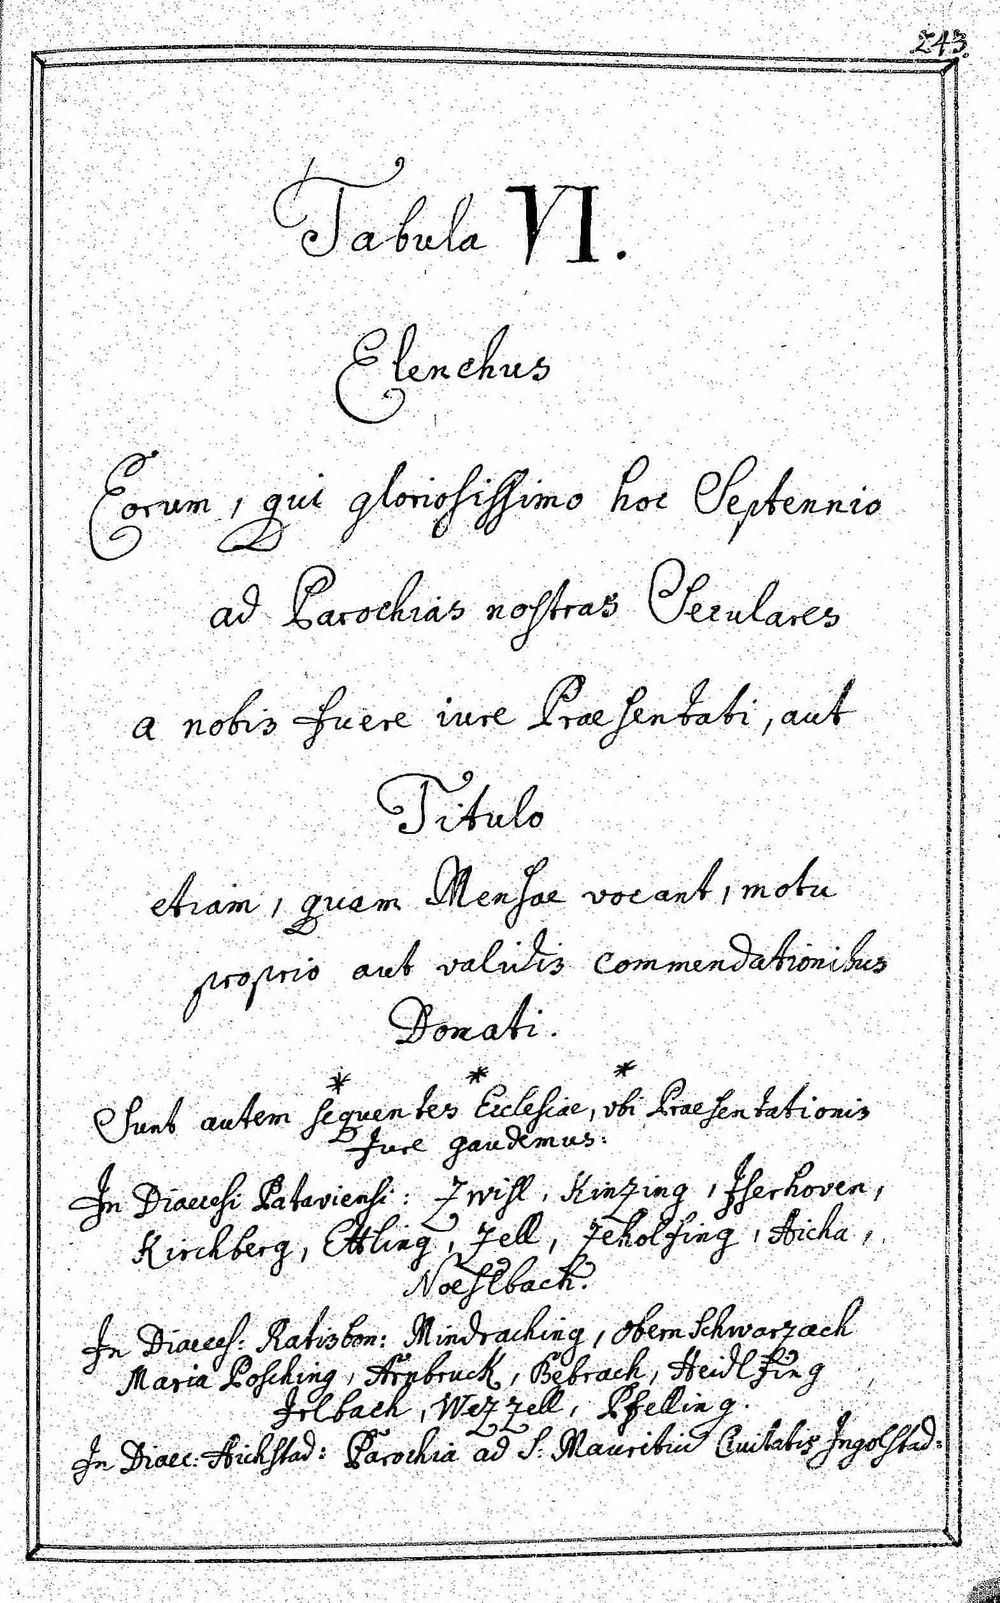 243.
Tabula VI.
Elenchus
Eorum, qui gloriosissimo hoc Septennio
ad Parochias nostras Seculares
a nobis fuere iure Praesentati, aut
Titulo
etiam, quam Mensae vocant, motu
proprio aut validis commendationibus
Donati.
* * *
Sunt autem sequentes Ecclesiae, vbi Praesentationis
Jure gaudemus:
In Diaecesi Pataviensi: Zwisl, Kinzing, Iserhoven,
Kirchberg, Ettling, Zell, Zeholfing, Aicha,
Noeslbach.
In Diaeces: Ratisbon: Mindraching, obern Schwarzach
Maria Posching, Arnbruck, Bebrach, Heidlfing
Irlbach, Wezzell, Pfelling.
In Diaec: Aichstad: Parochia ad S. Mauritiu Ciuitatis Ingolstad: